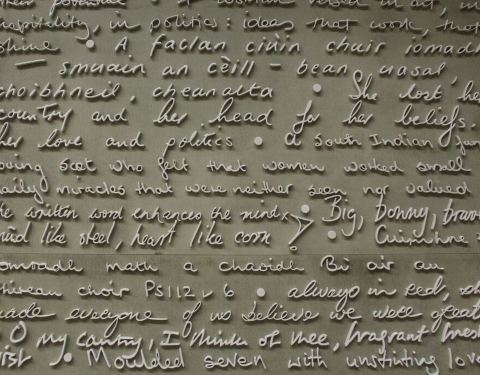 hospitality, in politics: ideas that work, that
shine • A faclan ciùin chuir iomadh
smuain an cèill - bean uasal,
choibhneil, cheanalta • She lost her
country and her head for her beliefs.
her love and politics • a South Indian
loving Scot who felt that women worked small
daily miracles that were neither seen nor valued
the written word enhances the mind • Big, bonny, brave
mind like steel, heart like corn • Cuimhne
comradh math a chaoidh Bi air an
choir Ps 112 v 6 • always in red,
made everyone of us believe we were great
O my country, I think of thee, fragrant
• Moulded seven with unstinting love